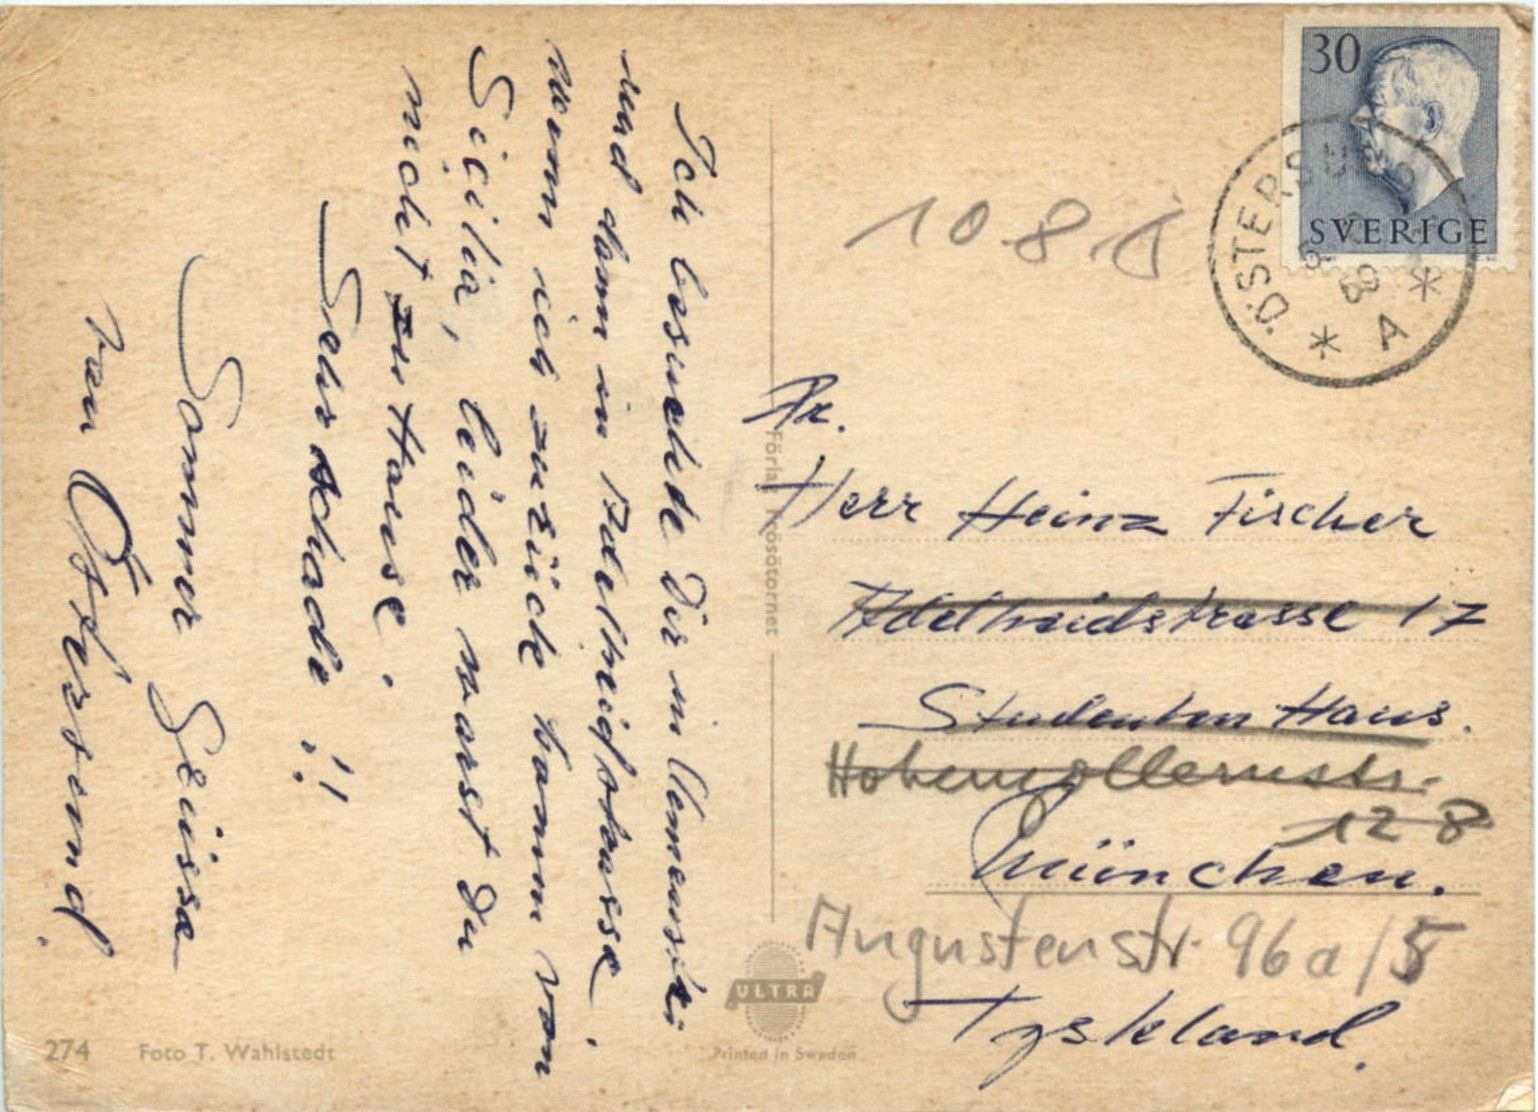 Ich besuchte Dir in
und dann in Adelheidstrasse,
wenn ich zurück kamm von
Sicilia, leider warst Du
nicht zu Hause.
Sehr schade!!
Sommer Grüsse
van Östersund.
274 Foto T. Wahlstedt
Förlag Frösötornet
ULTRA
Printed in Sweden
30
SVERIGE
ÖSTERSUND
* A *
108
Herr Heinz Fischer
Adelheidstrasse 17
Studenten Haus.
Hohenzollernstr.
128
München.
Augustenstr. 96a/5
Tyskland.